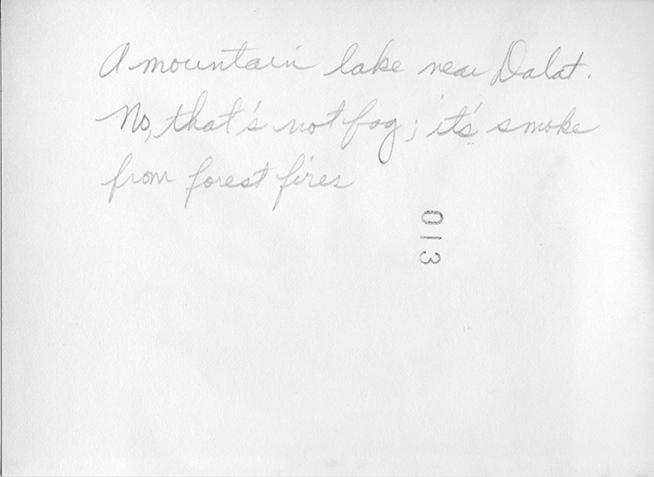 A mountain lake near Dalat.
No, that's not fog; it's smoke
from forest fires
013